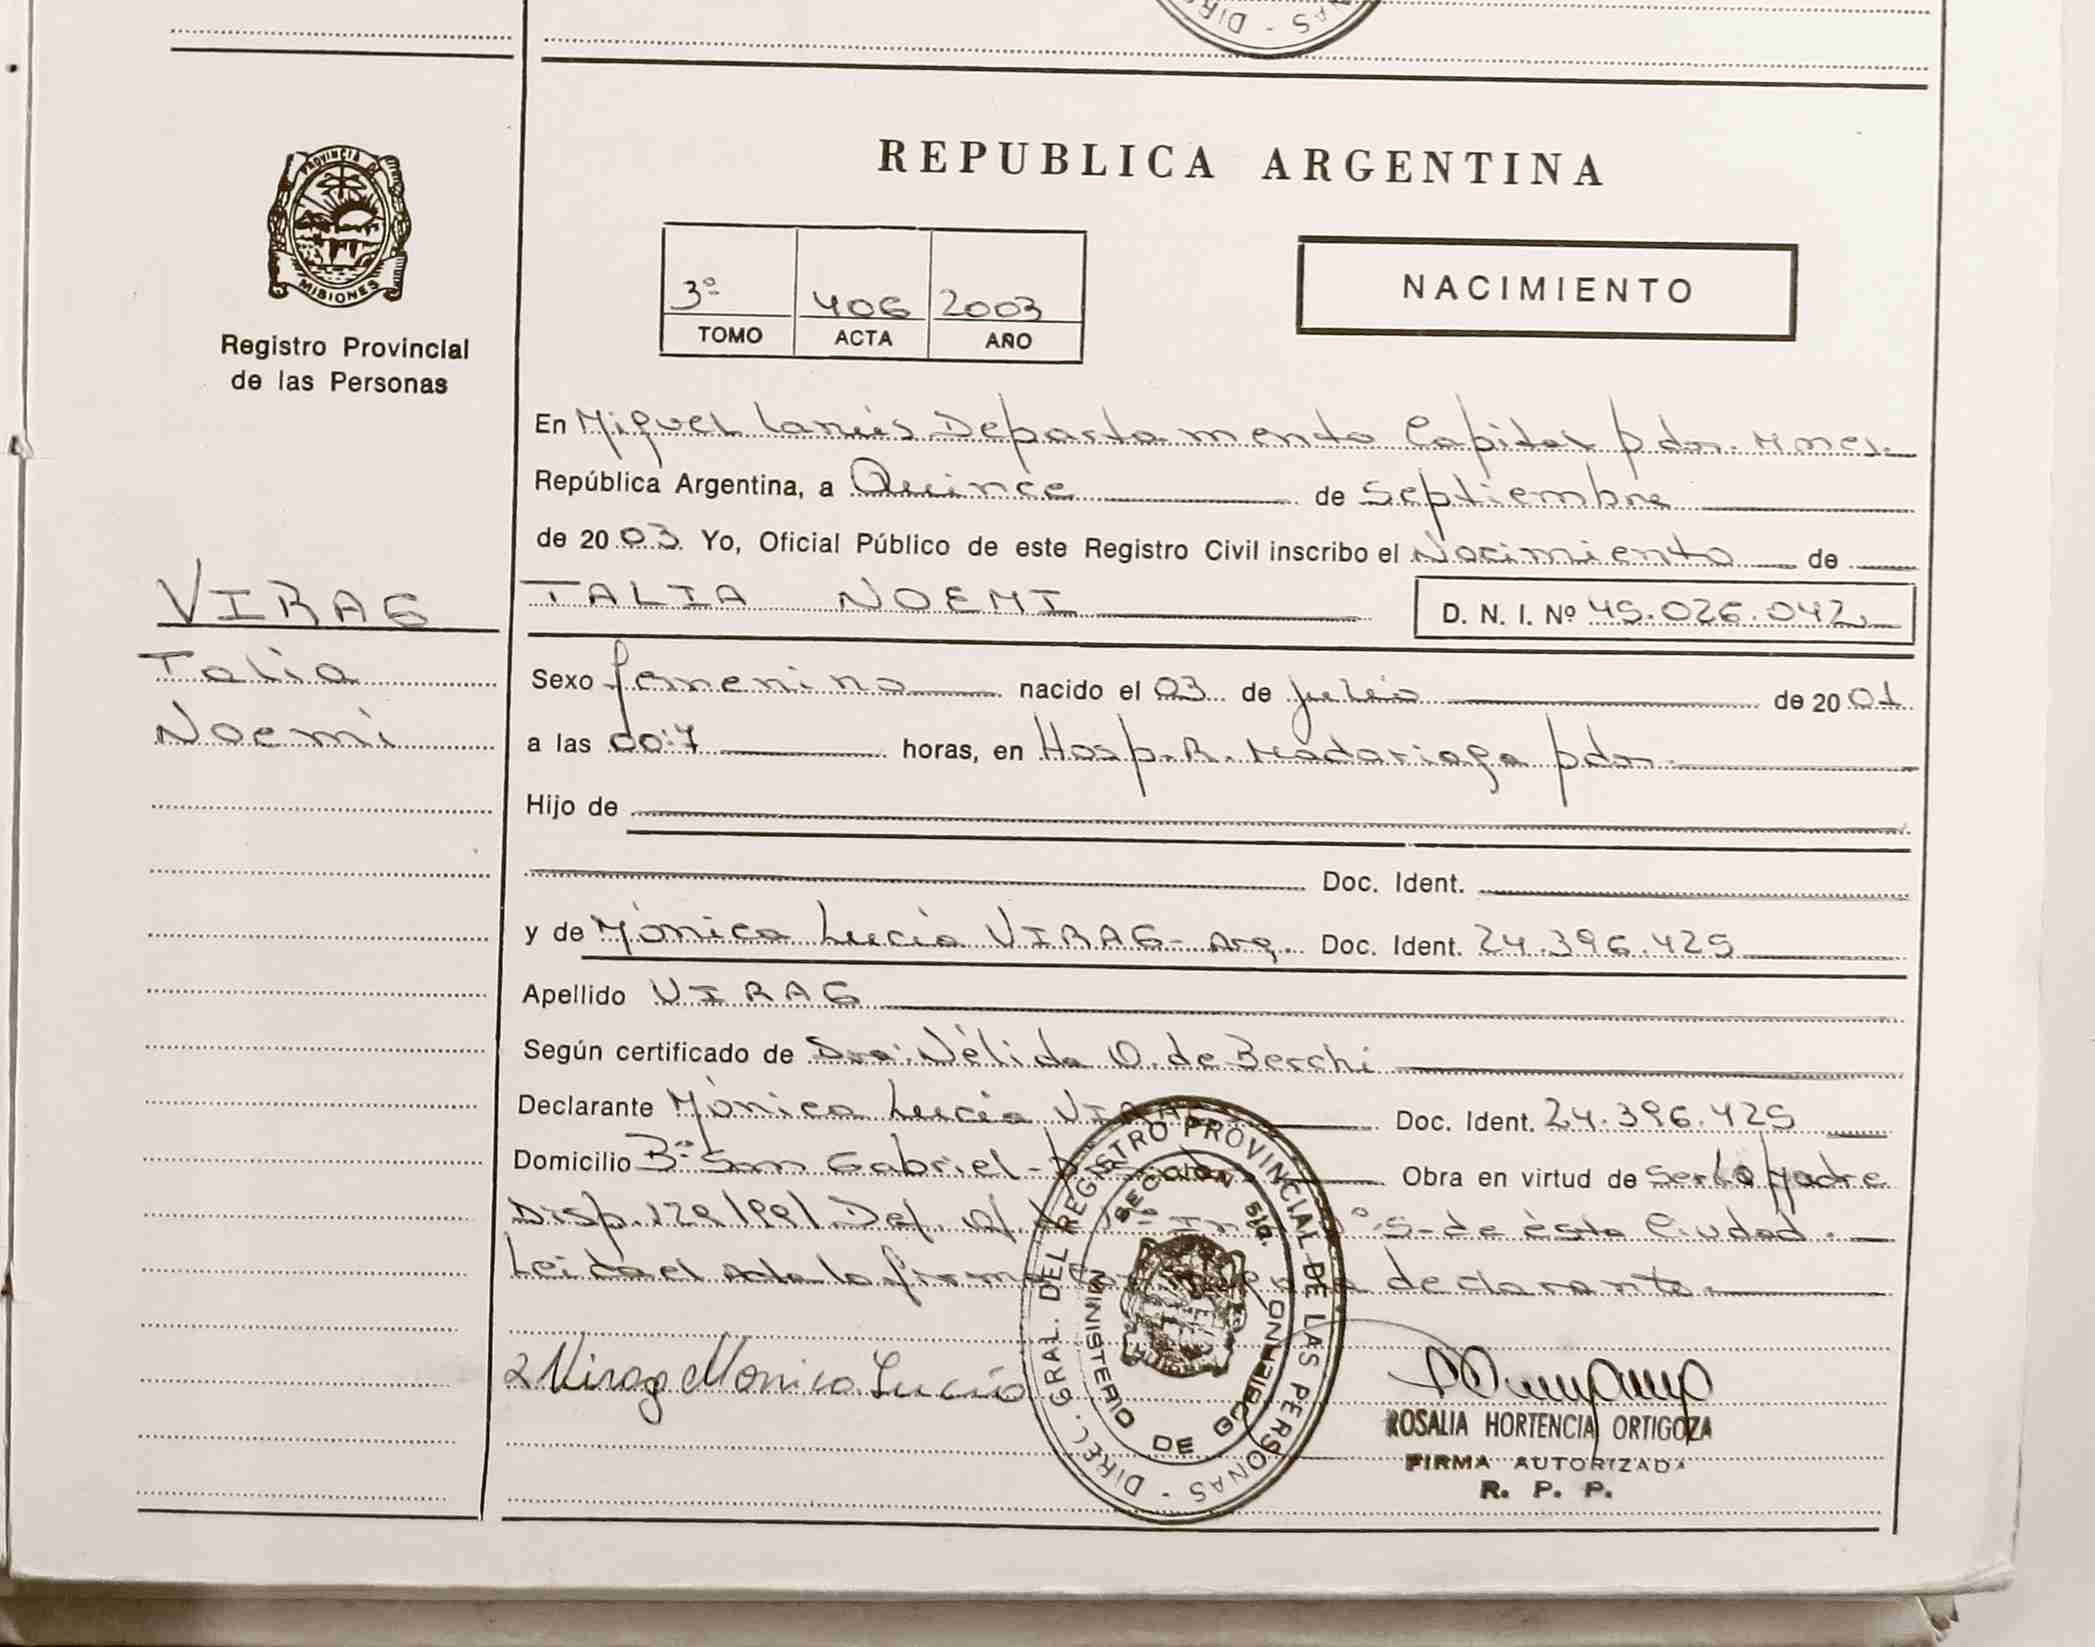 DIREC. - PERSONAS
PROVINCIA DE
MISIONES
Registro Provincial
de las Personas
REPUBLICA ARGENTINA
3º 406 2003
TOMO ACTA AÑO
NACIMIENTO
En Miguel Lanús Departamento Capital pdas. Mnes.
República Argentina, a Quince de Septiembre
de 2003 Yo, Oficial Público de este Registro Civil inscribo el Nacimiento de
TALIA NOEMI D. N. I. Nº 45.026.042
VIRAG
Talia
Noemi
Sexo femenino nacido el 03 de julio de 2001
a las 00:7 horas, en Hosp. R. Madariaga pdas.
Hijo de
Doc. Ident.
y de Mónica Lucía VIRAG - Arg. Doc. Ident. 24.396.425
Apellido VIRAG
Según certificado de Dra. Nélida O. de Berchi
Declarante Mónica Lucía VIRAG Doc. Ident. 24.396.425
Domicilio Bº San Gabriel - Obra en virtud de ser la Madre
Disp. 129/1991 Def. de ésta Ciudad.
Leida el Acta la firma declarante
Virag Monica Lucia
DIREC. GRAL. DEL REGISTRO PROVINCIAL DE LAS PERSONAS -
MINISTERIO DE GOBIERNO
SECCION
ROSALIA HORTENCIA ORTIGOZA
FIRMA AUTORIZADA
R. P. P.